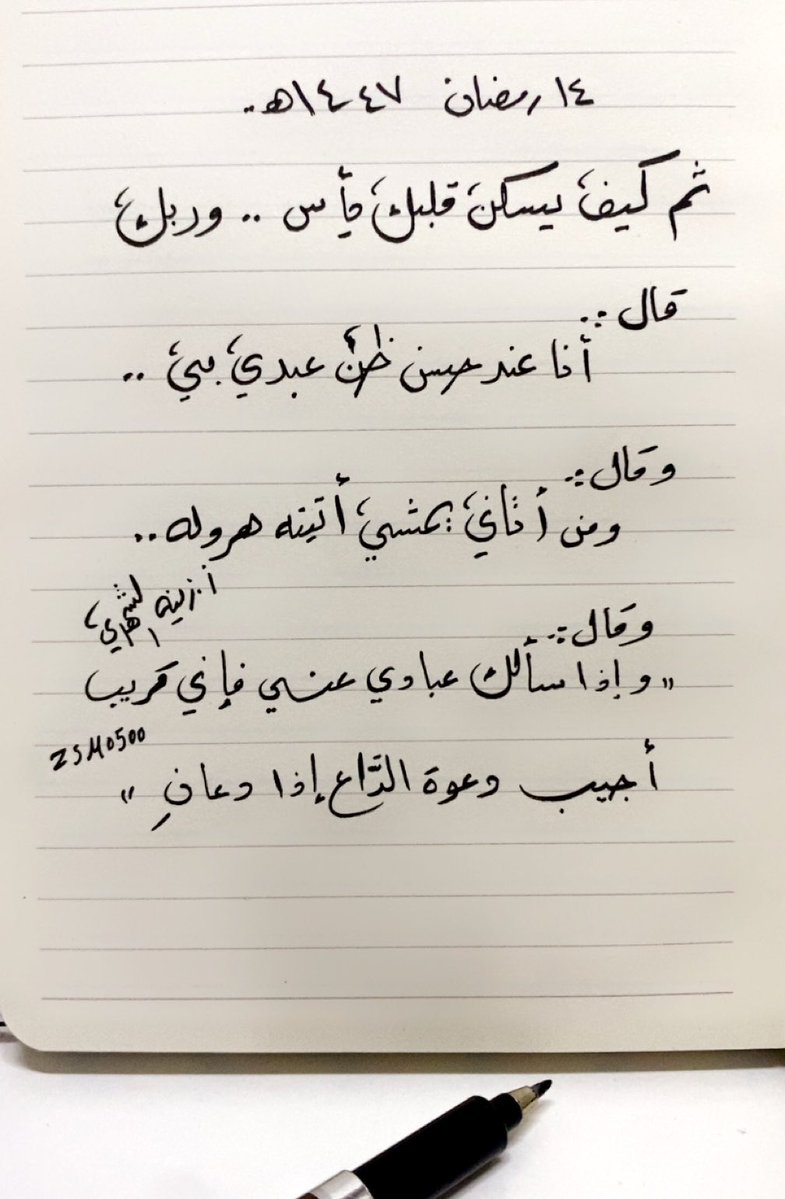 ١٤ رمضان ١٤٤٧هـ..
ثم كيف يسكن قلبك يأس .. وربك
قال :..
أنا عند حسن ظن عبدي بي ..
وقال :..
ومن أتاني يمشي أتيته هروله ..
أ. زينه الشهري
وقال :..
" وإذا سألك عبادي عني فإني قريب
ZSM0500
أجيب دعوة الدَّاع إذا دعانِ "